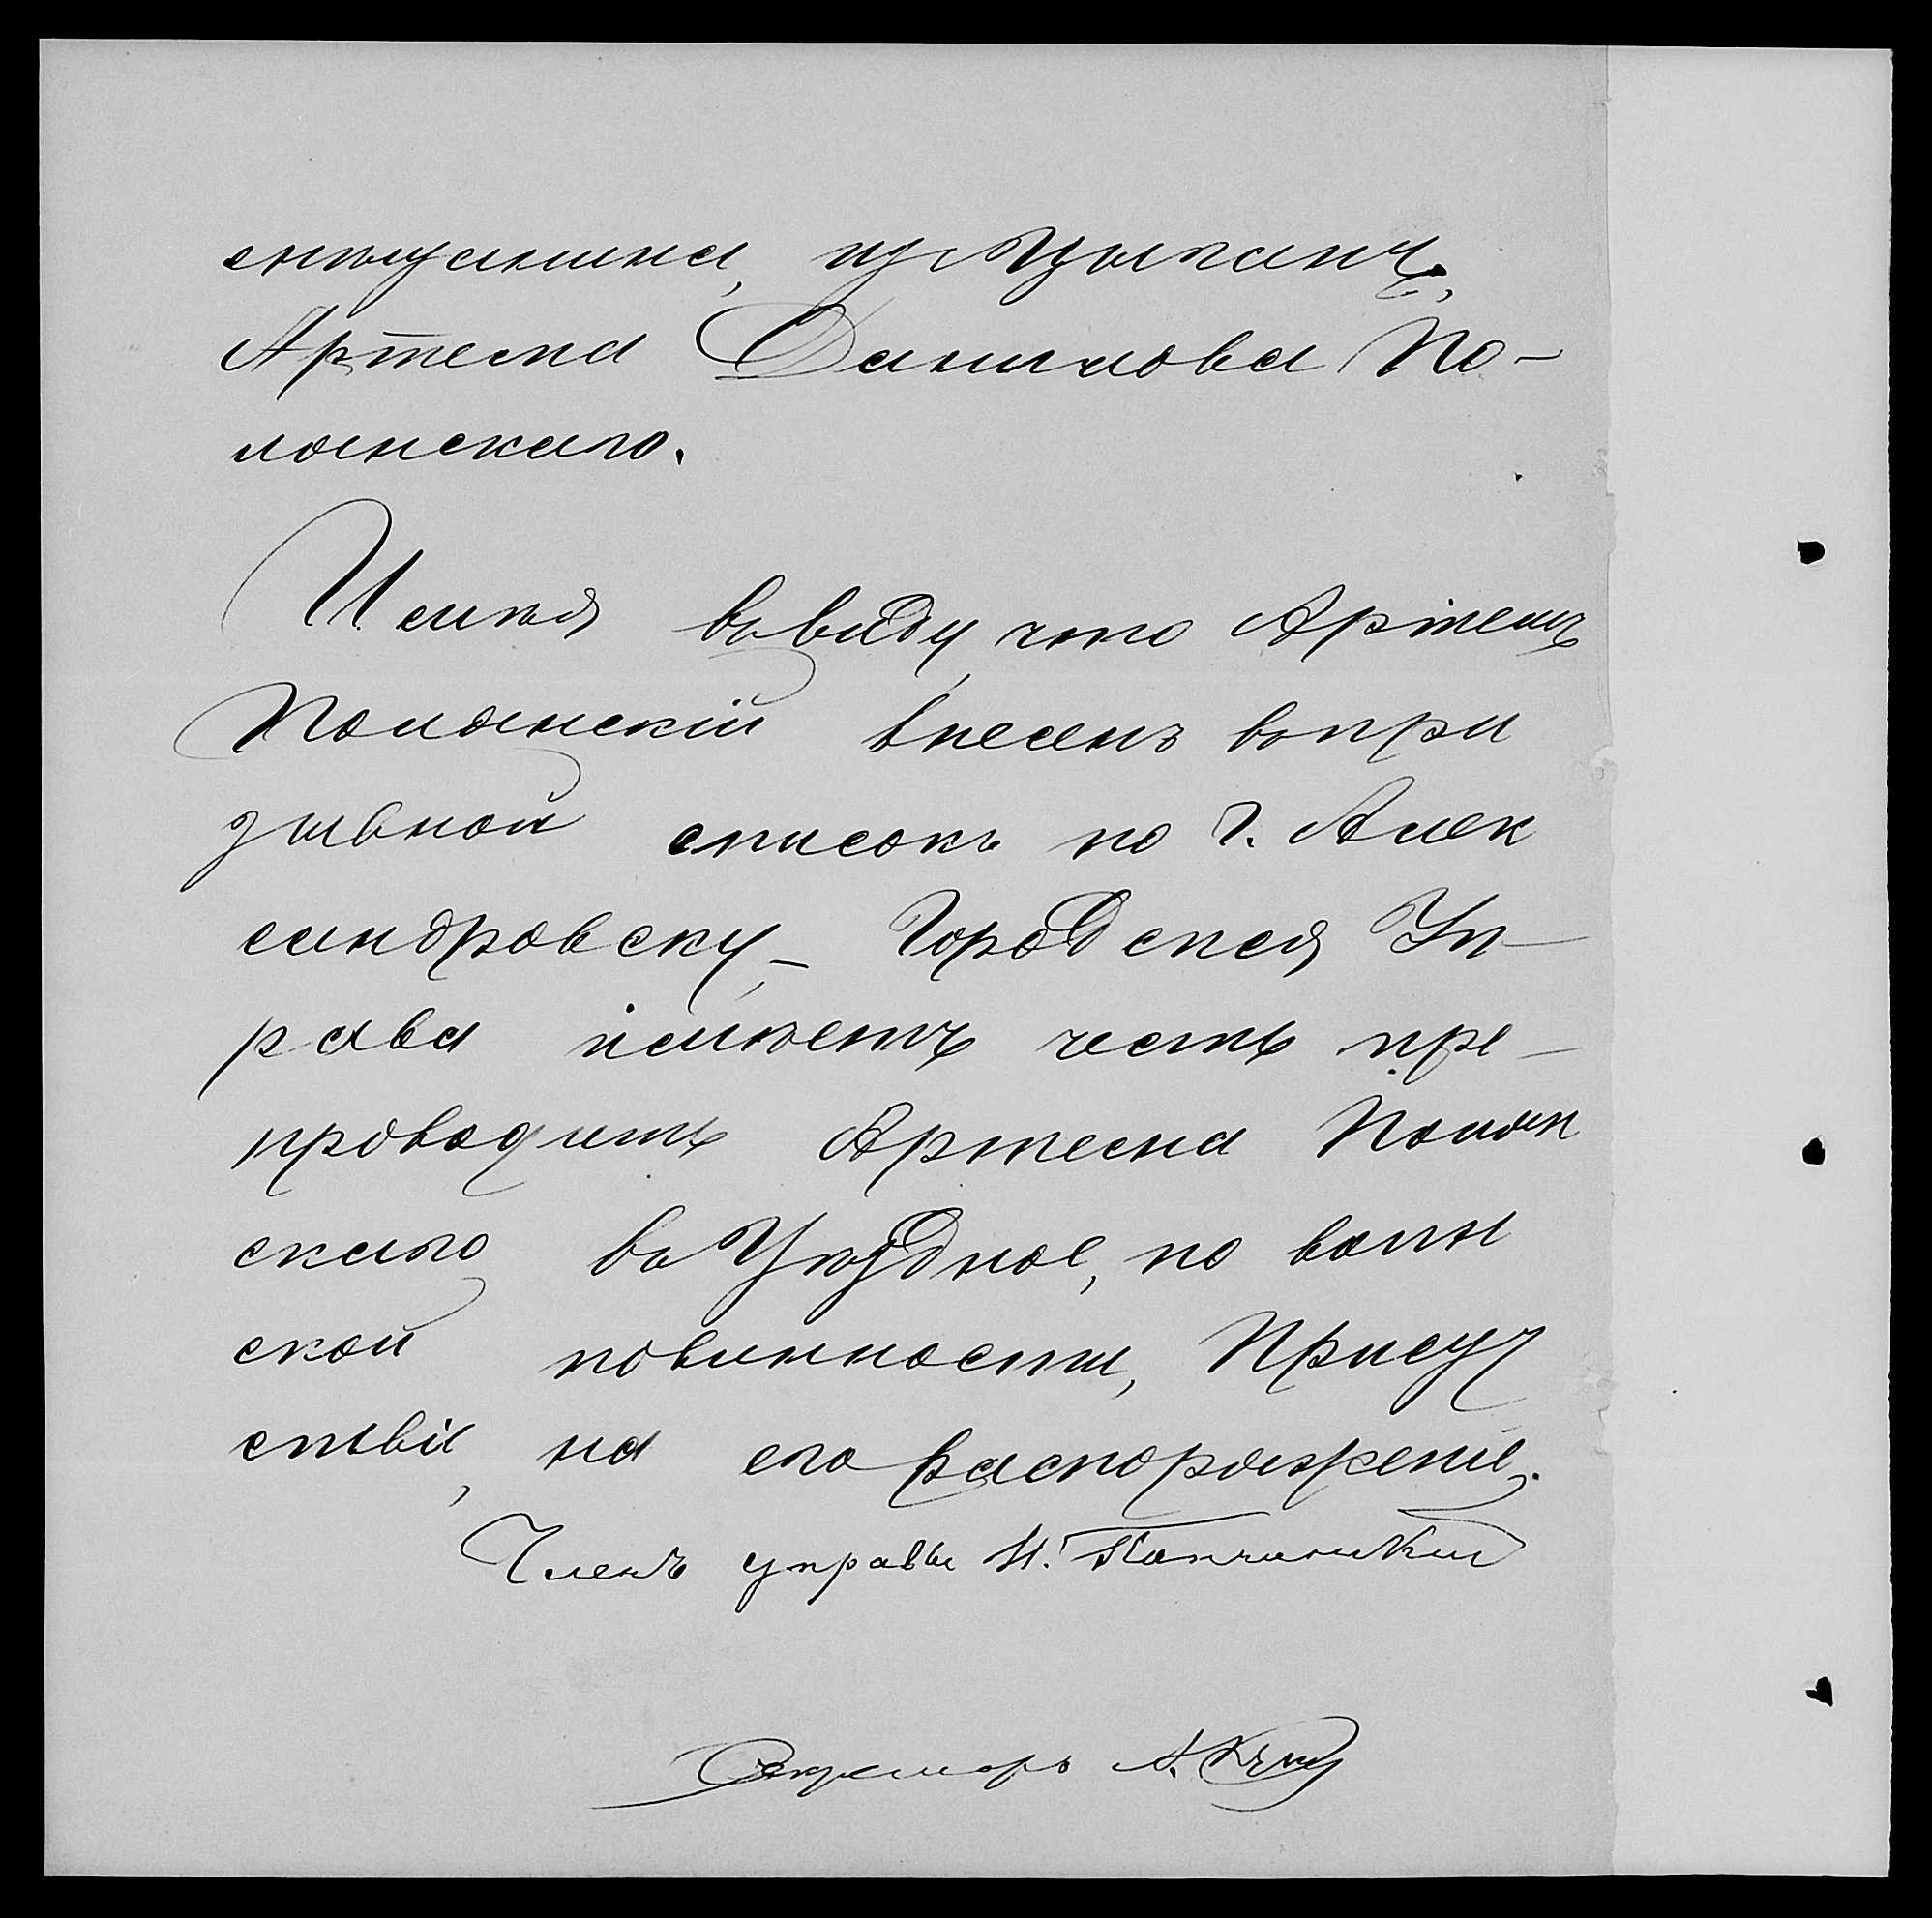 изъ Цыганъ,
Артема Данилова По-
лянскаго.
Имѣя въ виду, что Артемъ
Полянскій внесенъ въ при
зывной списокъ по г. Алек
сандровску, — Городская Уп-
рава имѣетъ честь пре-
проводить Артема Полян
скаго въ Уѣздное, по воин
ской повинности, Присут
ствіе, на его распоряженіе.
Членъ управы И.
Секретарь А.